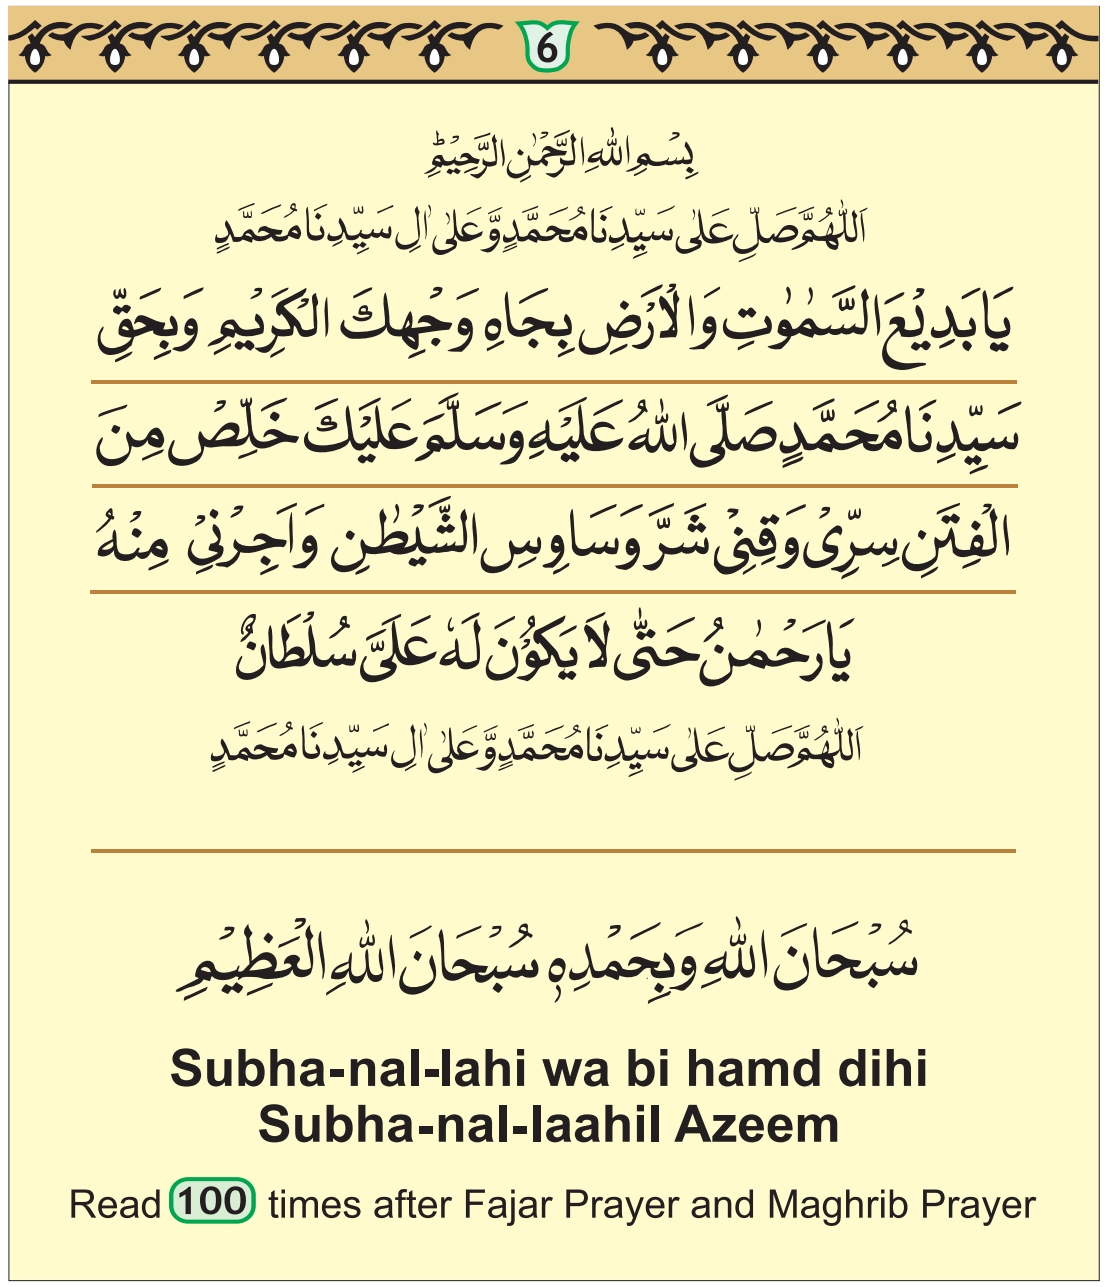 6
بِسْمِ اللهِ الرَّحْمٰنِ الرَّحِيْمِ ؕ
اَللّٰهُمَّ صَلِّ عَلٰى سَيِّدِنَا مُحَمَّدٍ وَّعَلٰى اٰلِ سَيِّدِنَا مُحَمَّدٍ
يَا بَدِيْعَ السَّمٰوٰتِ وَالْاَرْضِ بِجَاهِ وَجْهِكَ الْكَرِيْمِ وَبِحَقِّ
سَيِّدِنَا مُحَمَّدٍ صَلَّى اللهُ عَلَيْهِ وَسَلَّمَ عَلَيْكَ خَلِّصْ مِنَ
الْفِتَنِ سِرِّىْ وَقِنِىْ شَرَّ وَسَاوِسِ الشَّيْطٰنِ وَاَجِرْنِىْ مِنْهُ
يَا رَحْمٰنُ حَتّٰى لَا يَكُوْنَ لَهٗ عَلَىَّ سُلْطَانٌ
اَللّٰهُمَّ صَلِّ عَلٰى سَيِّدِنَا مُحَمَّدٍ وَّعَلٰى اٰلِ سَيِّدِنَا مُحَمَّدٍ
سُبْحَانَ اللهِ وَبِحَمْدِهٖ سُبْحَانَ اللهِ الْعَظِيْمِ
Subha-nal-lahi wa bi hamd dihi
Subha-nal-laahil Azeem
Read 100 times after Fajar Prayer and Maghrib Prayer